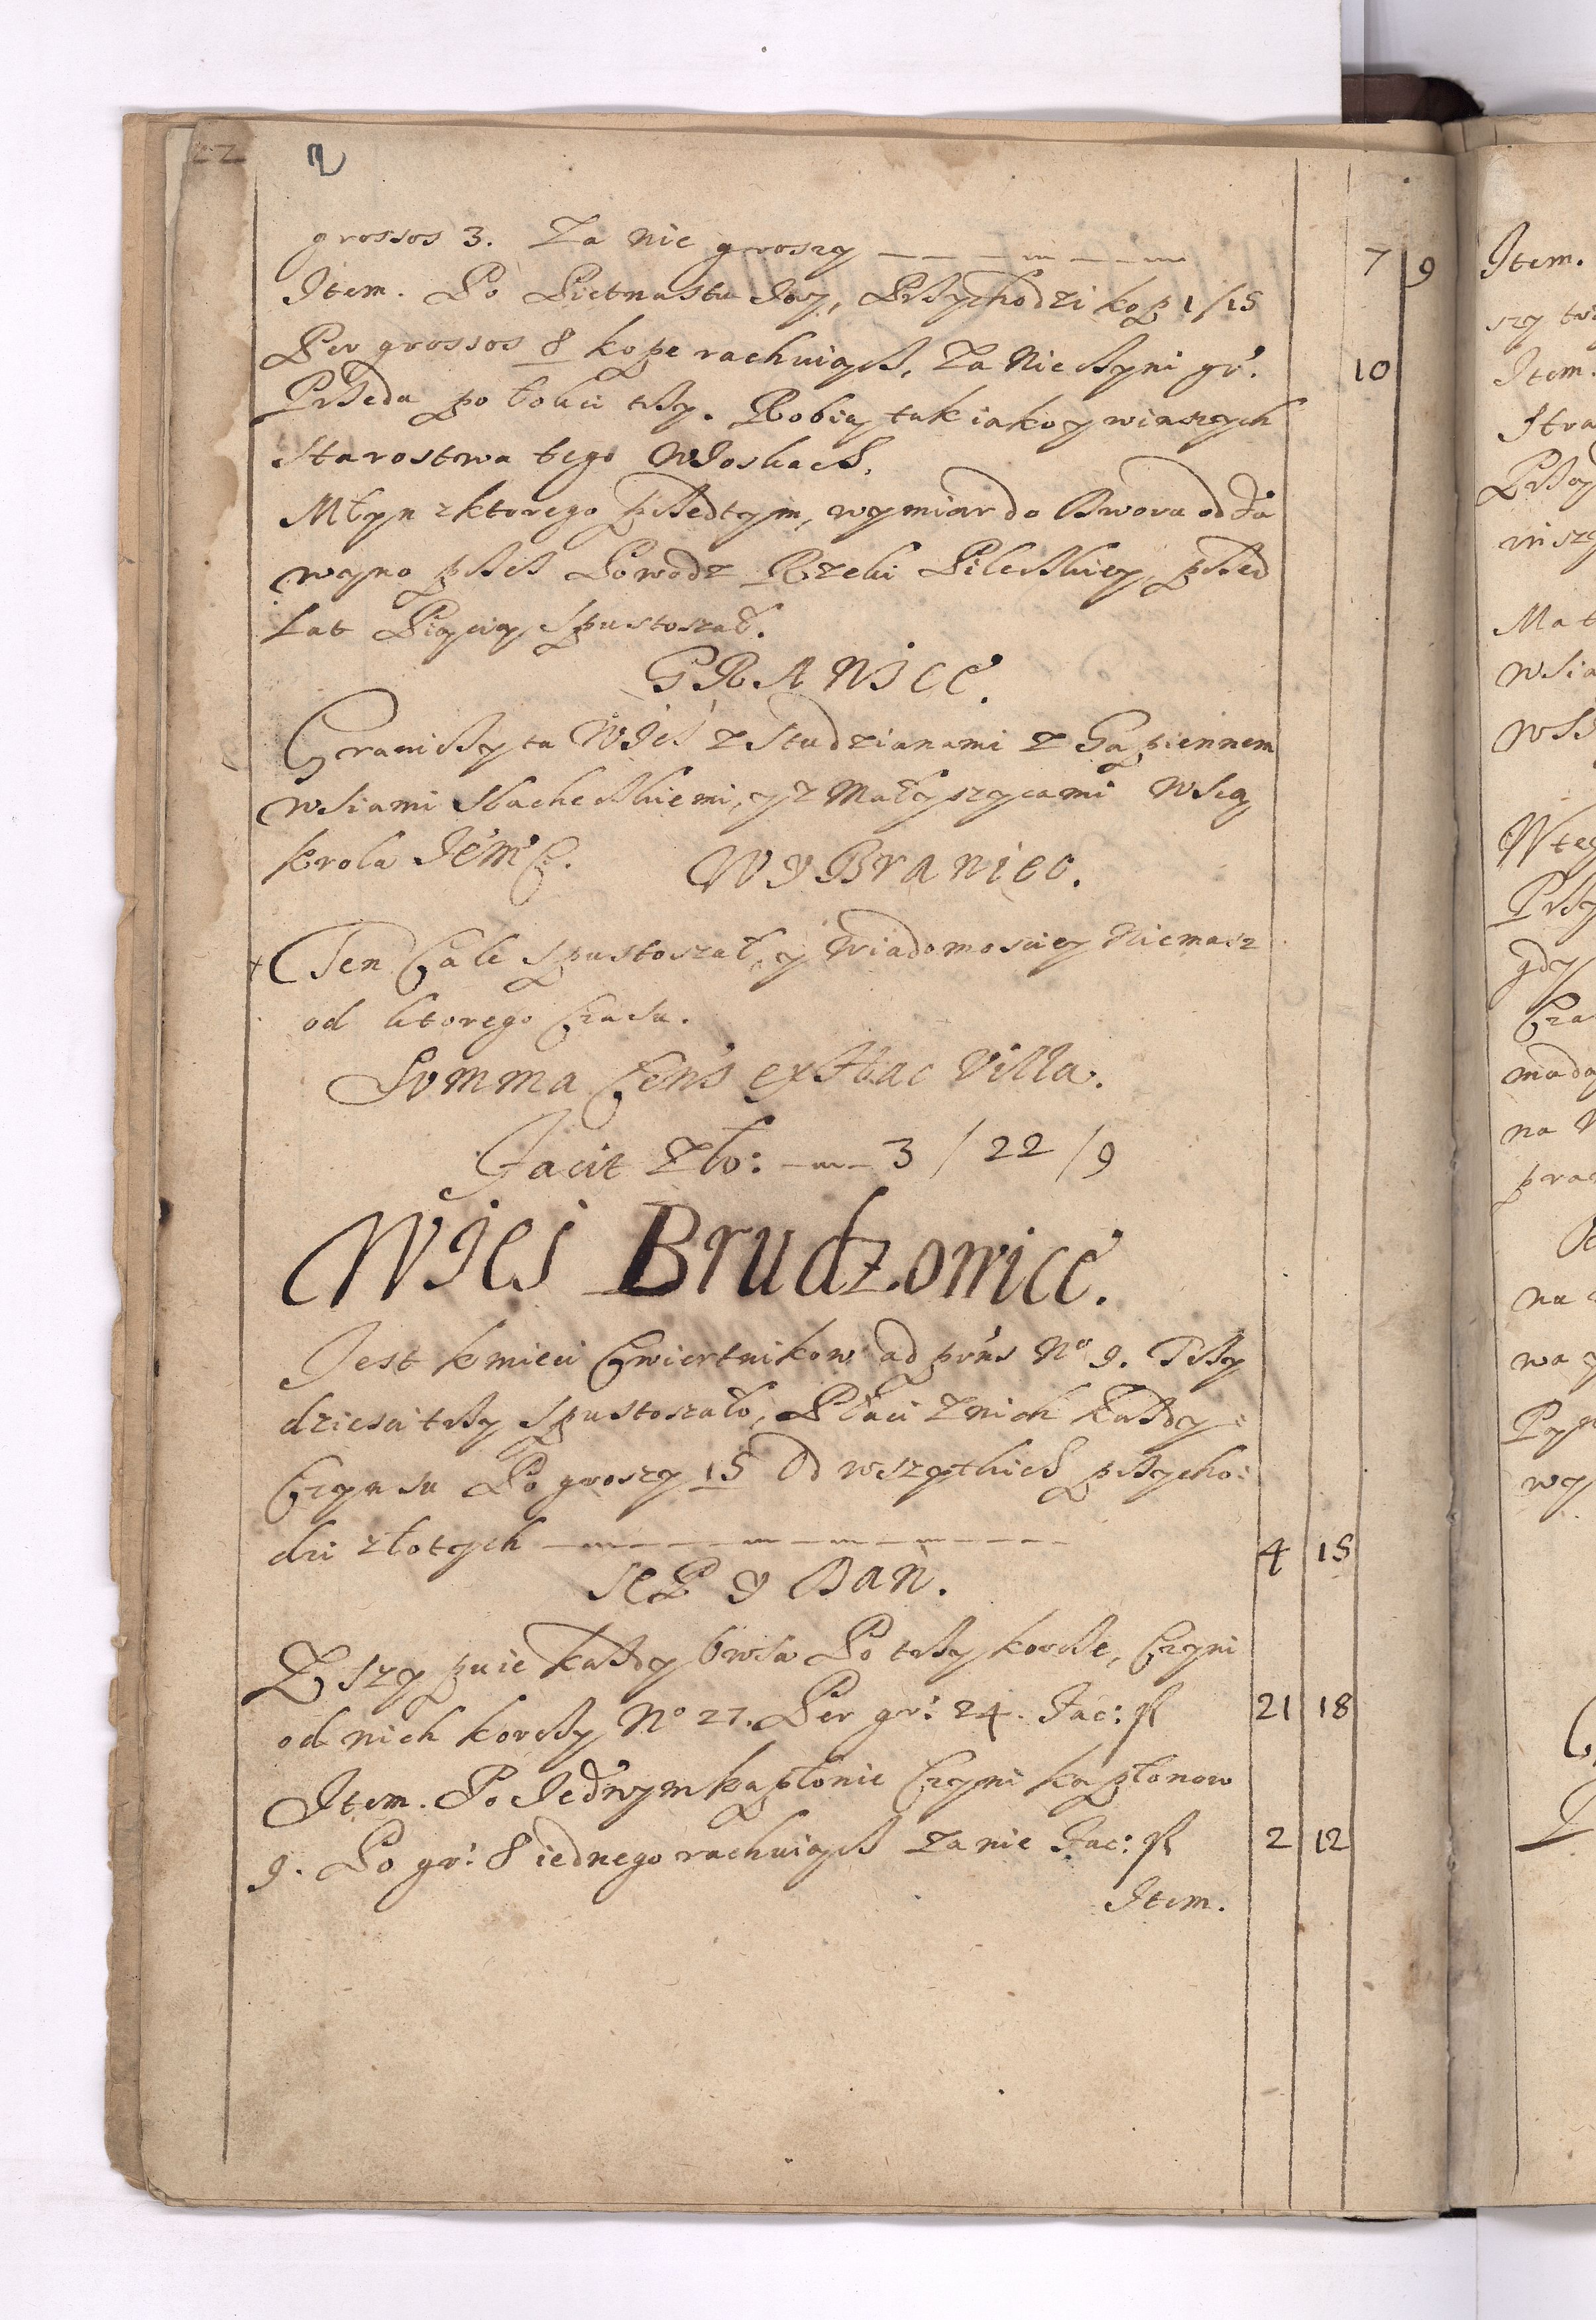 22
grossos 3. Za nie groszy 7 9
Item. Po Pietnastu Iay, Przychodzi kop 1/15
Per grossos 8 kope rachuiąc, Za nie czyni gr. 10
Przędą po łokci trzy. Robią tak iako y winszych
Starostwa tego Wioskach.
Młyn zktorego przedtym, wymiar do Dwora odda
wano przez Powodz Rzeki Pileckiey, przed
Lat Pięcią Spustoszał.
GRANICE.
Graniczy ta Wieś z Studzianami z Gapiennem
wsiami Slacheckiemi, y z Małyszycami Wsią
krola Jem.
WYBraniec.
Ten Cale Spustoszał, y Wiadomosciey Niemasz
od ktorego Czasu.
Summa Cens ex Hac Villa.
Facit Zło: 3 / 22 / 9
Wies Brudzowice.
Jest kmieci Cwiertnikow ad prns No 9. Trzy
dziesci trzy Spustoszało, Płaci Znich Każdy
Czynsu Po groszy 15 Od wszytkich przycho:
dzi złotych 4 15
SEP y DAN.
Zszypuie każdy Owsa Po trzy korce, Czyni
od nich korcy No 27. Per gr: 24. Fac: fl 21 18
Item. Po Iednym kapłonie Czyni kapłonow
9. Po gr: 8 iednego rachuiąc Za nie Fac: fl 2 12
Item.
Item.
szy
Item.
Stra
inszy
Mat
wsia
gdy
Cza
mada
na
pra
na
wa
wy